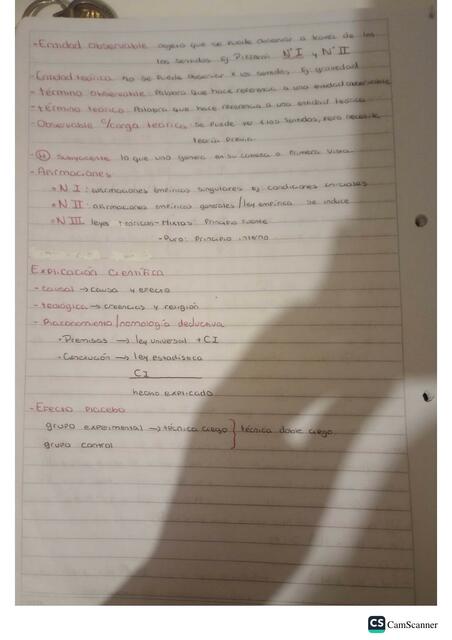 - Entidad observable objeto que se puede observar a través de los
los sentidos. Ej: Pizarrón N°I y N°II
- Entidad teórica no se puede observar x los sentidos. Ej: gravedad
- término observable: Palabra que hace referencia a una entidad observable
- término teórico: Palabra que hace referencia a una entidad teórica
- Observable c/carga teórica: se puede ver x los sentidos, pero necesita
teoría previa
- (H) Subyacente lo que uno genera en su cabeza a primera vista
- Afirmaciones
• N I: afirmaciones empíricas singulares ej: condiciones iniciales
• N II: afirmaciones empíricas generales / ley empírica se induce
• N III leyes teóricas - Mixtas: Principio puente
- Puro: Principio interno
Explicación Científica
- causal → causa y efecto
- teológica → creencias y religión
- Razonamiento/nomología deductiva
• Premisas → ley universal + CI
• Conclusión → ley estadística
CI
hecho explicado
- Efecto placebo
grupo experimental → técnica ciego } técnica doble ciego
grupo control
CS CamScanner